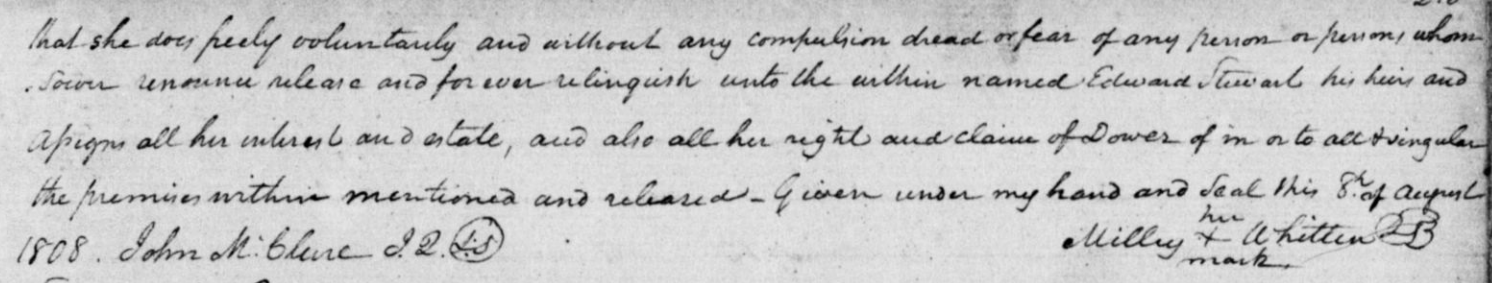 that she does freely voluntarily and without any compulsion dread or fear of any person or persons whom
soever renounce release and for ever relinquish unto the within named Edward Stewart his heirs and
assigns all her interest and estate, and also all her right and claim of Dower of in or to all & singular
the premises within mentioned and released - Given under my hand and Seal this 8th of August
her
1808. John McClure J. Q. L.S Milley + Whitten
mark